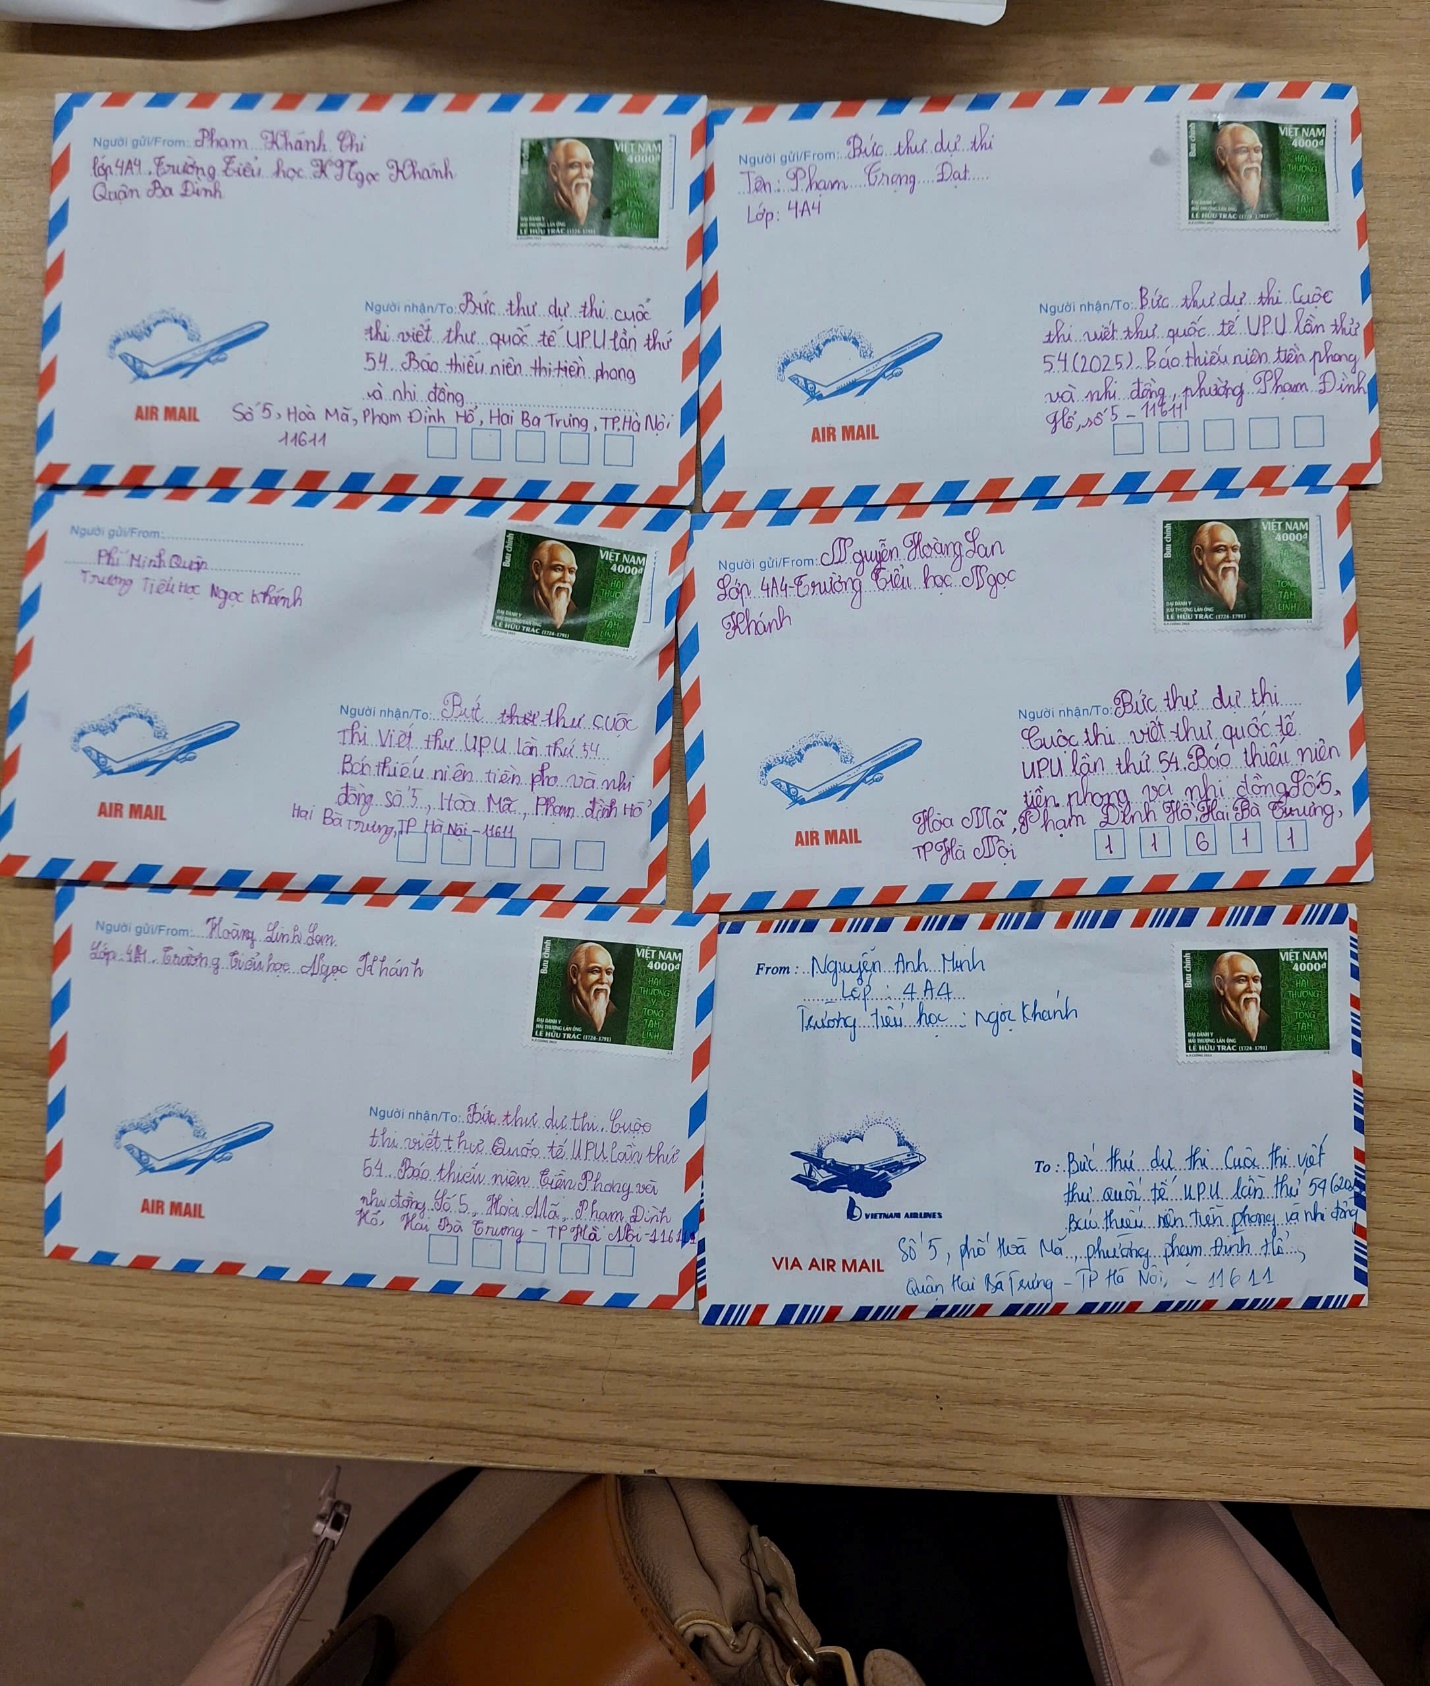 Người gửi/From: Phạm Khánh Chi
lớp 4A4. Trường Tiểu học Ngọc Khánh
Quận Ba Đình
VIỆT NAM
4000đ
HẢI
THƯỢNG
Y
TÔNG
TÂM
LĨNH
ĐẠI DANH Y
HẢI THƯỢNG LÃN ÔNG
LÊ HỮU TRÁC (1724-1791)
Người nhận/To: Bức thư dự thi cuộc
thi viết thư quốc tế UPU lần thứ
54. Báo thiếu niên thi tiền phong
và nhi đồng
Số 5, Hoà Mã, Phạm Đình Hổ, Hai Ba Trưng, TP. Hà Nội
11611
AIR MAIL
Người gửi/From: Bức thư dự thi
Tên: Phạm Trọng Đạt
Lớp: 4A4
Bưu chính
VIỆT NAM
4000đ
HẢI
THƯỢNG
Y
TÔNG
TÂM
LĨNH
ĐẠI DANH Y
HẢI THƯỢNG LÃN ÔNG
LÊ HỮU TRÁC (1724-1791)
Người nhận/To: Bức thư dự thi Cuộc
thi viết thư quốc tế UPU lần thứ
54 (2025). Báo thiếu niên tiền phong
và nhi đồng, phường Phạm Đình
Hổ, số 5 - 11611
AIR MAIL
Người gửi/From:
Phí Minh Quân
Trường Tiểu Học Ngọc Khánh
Bưu chính
VIỆT NAM
4000đ
HẢI
THƯỢNG
Y
TÔNG
TÂM
LĨNH
ĐẠI DANH Y
HẢI THƯỢNG LÃN ÔNG
LÊ HỮU TRÁC (1724-1791)
Người nhận/To: Bức thư cuộc
Thi Viết thư UPU lần thứ 54
Báo thiếu niên tiền pho và nhi
đồng số 5, Hòa Mã, Phạm đình Hổ
Hai Bà Trưng, TP Hà Nội - 11611
AIR MAIL
Người gửi/From: Nguyễn Hoàng Lan
Lớp 4A4-Trường Tiểu học Ngọc
Khánh
Bưu chính
VIỆT NAM
4000đ
HẢI
THƯỢNG
Y
TÔNG
TÂM
LĨNH
ĐẠI DANH Y
HẢI THƯỢNG LÃN ÔNG
LÊ HỮU TRÁC (1724-1791)
Người nhận/To: Bức thư dự thi
Cuộc thi viết thư quốc tế
UPU lần thứ 54. Báo thiếu niên
tiền phong và nhi đồng Số 5,
Hòa Mã, Phạm Đình Hổ, Hai Bà Trưng,
TP Hà Nội
1 1 6 1 1
AIR MAIL
Người gửi/From: Hoàng Linh Lam
Lớp Trường Tiểu học Ngọc Khánh
Bưu chính
VIỆT NAM
4000đ
HẢI
THƯỢNG
Y
TÔNG
TÂM
LĨNH
ĐẠI DANH Y
HẢI THƯỢNG LÃN ÔNG
LÊ HỮU TRÁC (1724-1791)
Người nhận/To: Bức thư dự thi. Cuộc
thi viết thư Quốc tế UPU lần thứ
54. Báo thiếu niên Tiền Phong và
nhi đồng Số 5, Hoà Mã, Phạm Đình
Hổ, Hai Bà Trương - TP Hà Nội - 11611
AIR MAIL
From: Nguyễn Anh Minh
Lớp: 4A4
Trường tiểu học: Ngọc Khánh
Bưu chính
VIỆT NAM
4000đ
HẢI
THƯỢNG
Y
TÔNG
TÂM
LĨNH
ĐẠI DANH Y
HẢI THƯỢNG LÃN ÔNG
LÊ HỮU TRÁC (1724-1791)
VIETNAM AIRLINES
To: Bức thư dự thi Cuộc thi viết
thư quốc tế UPU lần thứ 54 (202
Báo thiếu niên tiền phong và nhi đồng
Số 5, phố Hoà Mã, phường phạm Đình Hổ,
Quận Hai Bà Trưng - TP Hà Nội, - 11611
VIA AIR MAIL